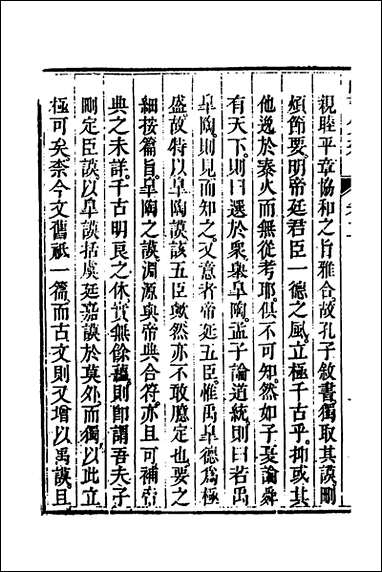 親睦平章協和之旨雅合故孔子敘書獨取其謨刪
煩節要明帝廷君臣一德之風立極千古乎抑或其
他逸於秦火而無從考耶俱不可知然如子夏論舜
有天下則曰選於衆舉臯陶孟子論道統則曰若禹
臯陶則見而知之又意者帝廷五臣惟禹臯德爲極
盛故特以臯陶謨該五臣歟然亦不敢臆定也要之
細按篇旨臯陶之謨淵源與帝典合符亦且可補帝
典之未詳千古明良之休實無餘蘊則即謂吾夫子
刪定臣謨以臯謨括虞廷嘉謨於莫外而獨以此立
極可矣柰今文舊祇一篇而古文則又增以禹謨且